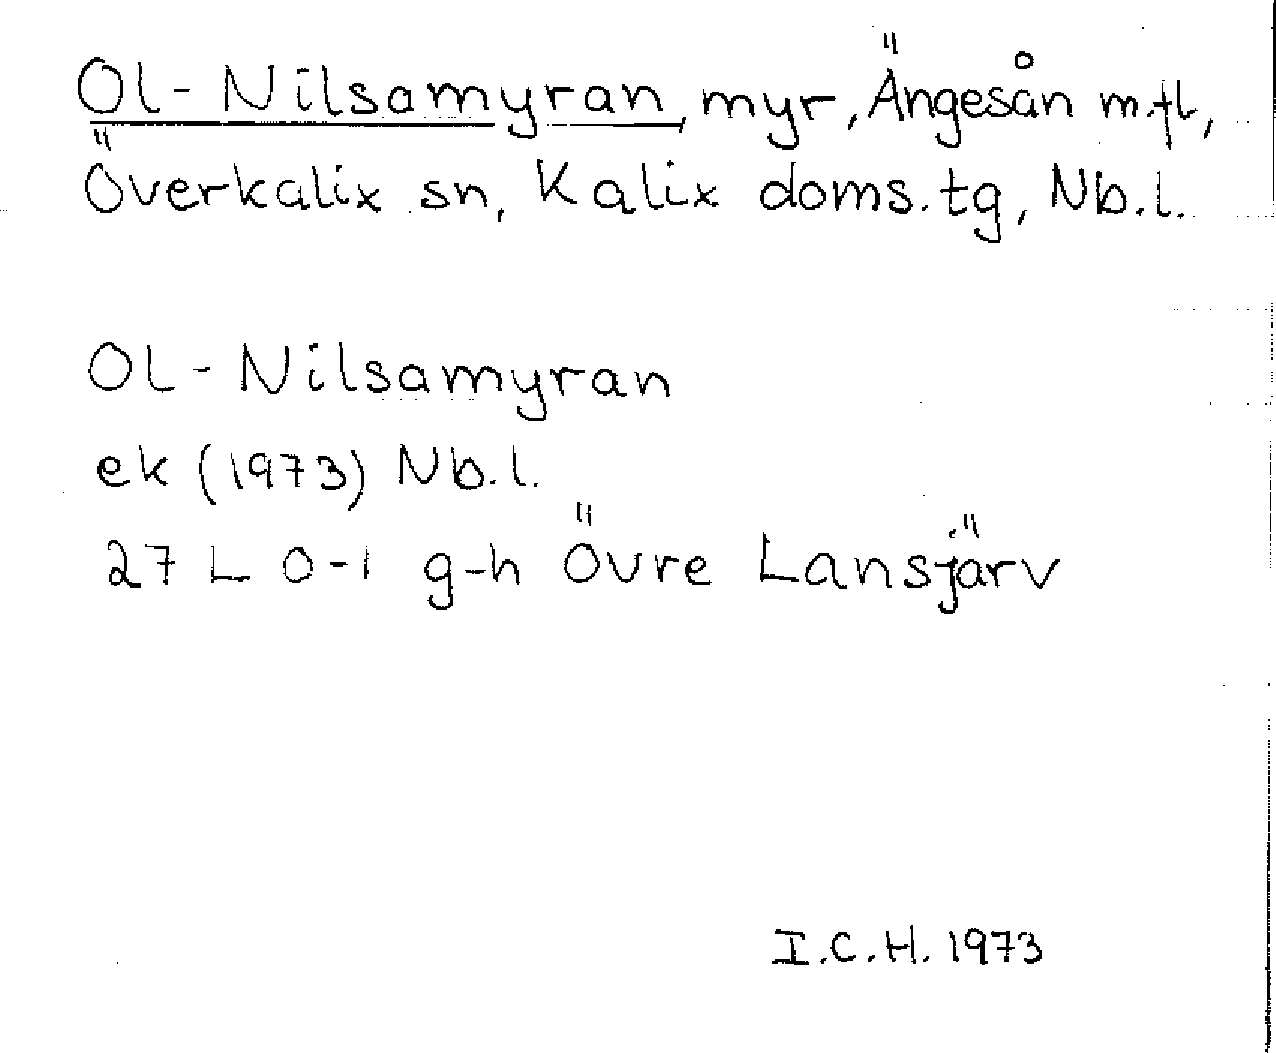 Ol-Nilsamyran, myr, Ängesån m.fl,
Överkalix sn, Kalix doms.tg, Nb.l.
OL-Nilsamyran
ek (1973) Nb.l.
27 L 0-1 g-h Övre Lansjärv
I.C.H. 1973